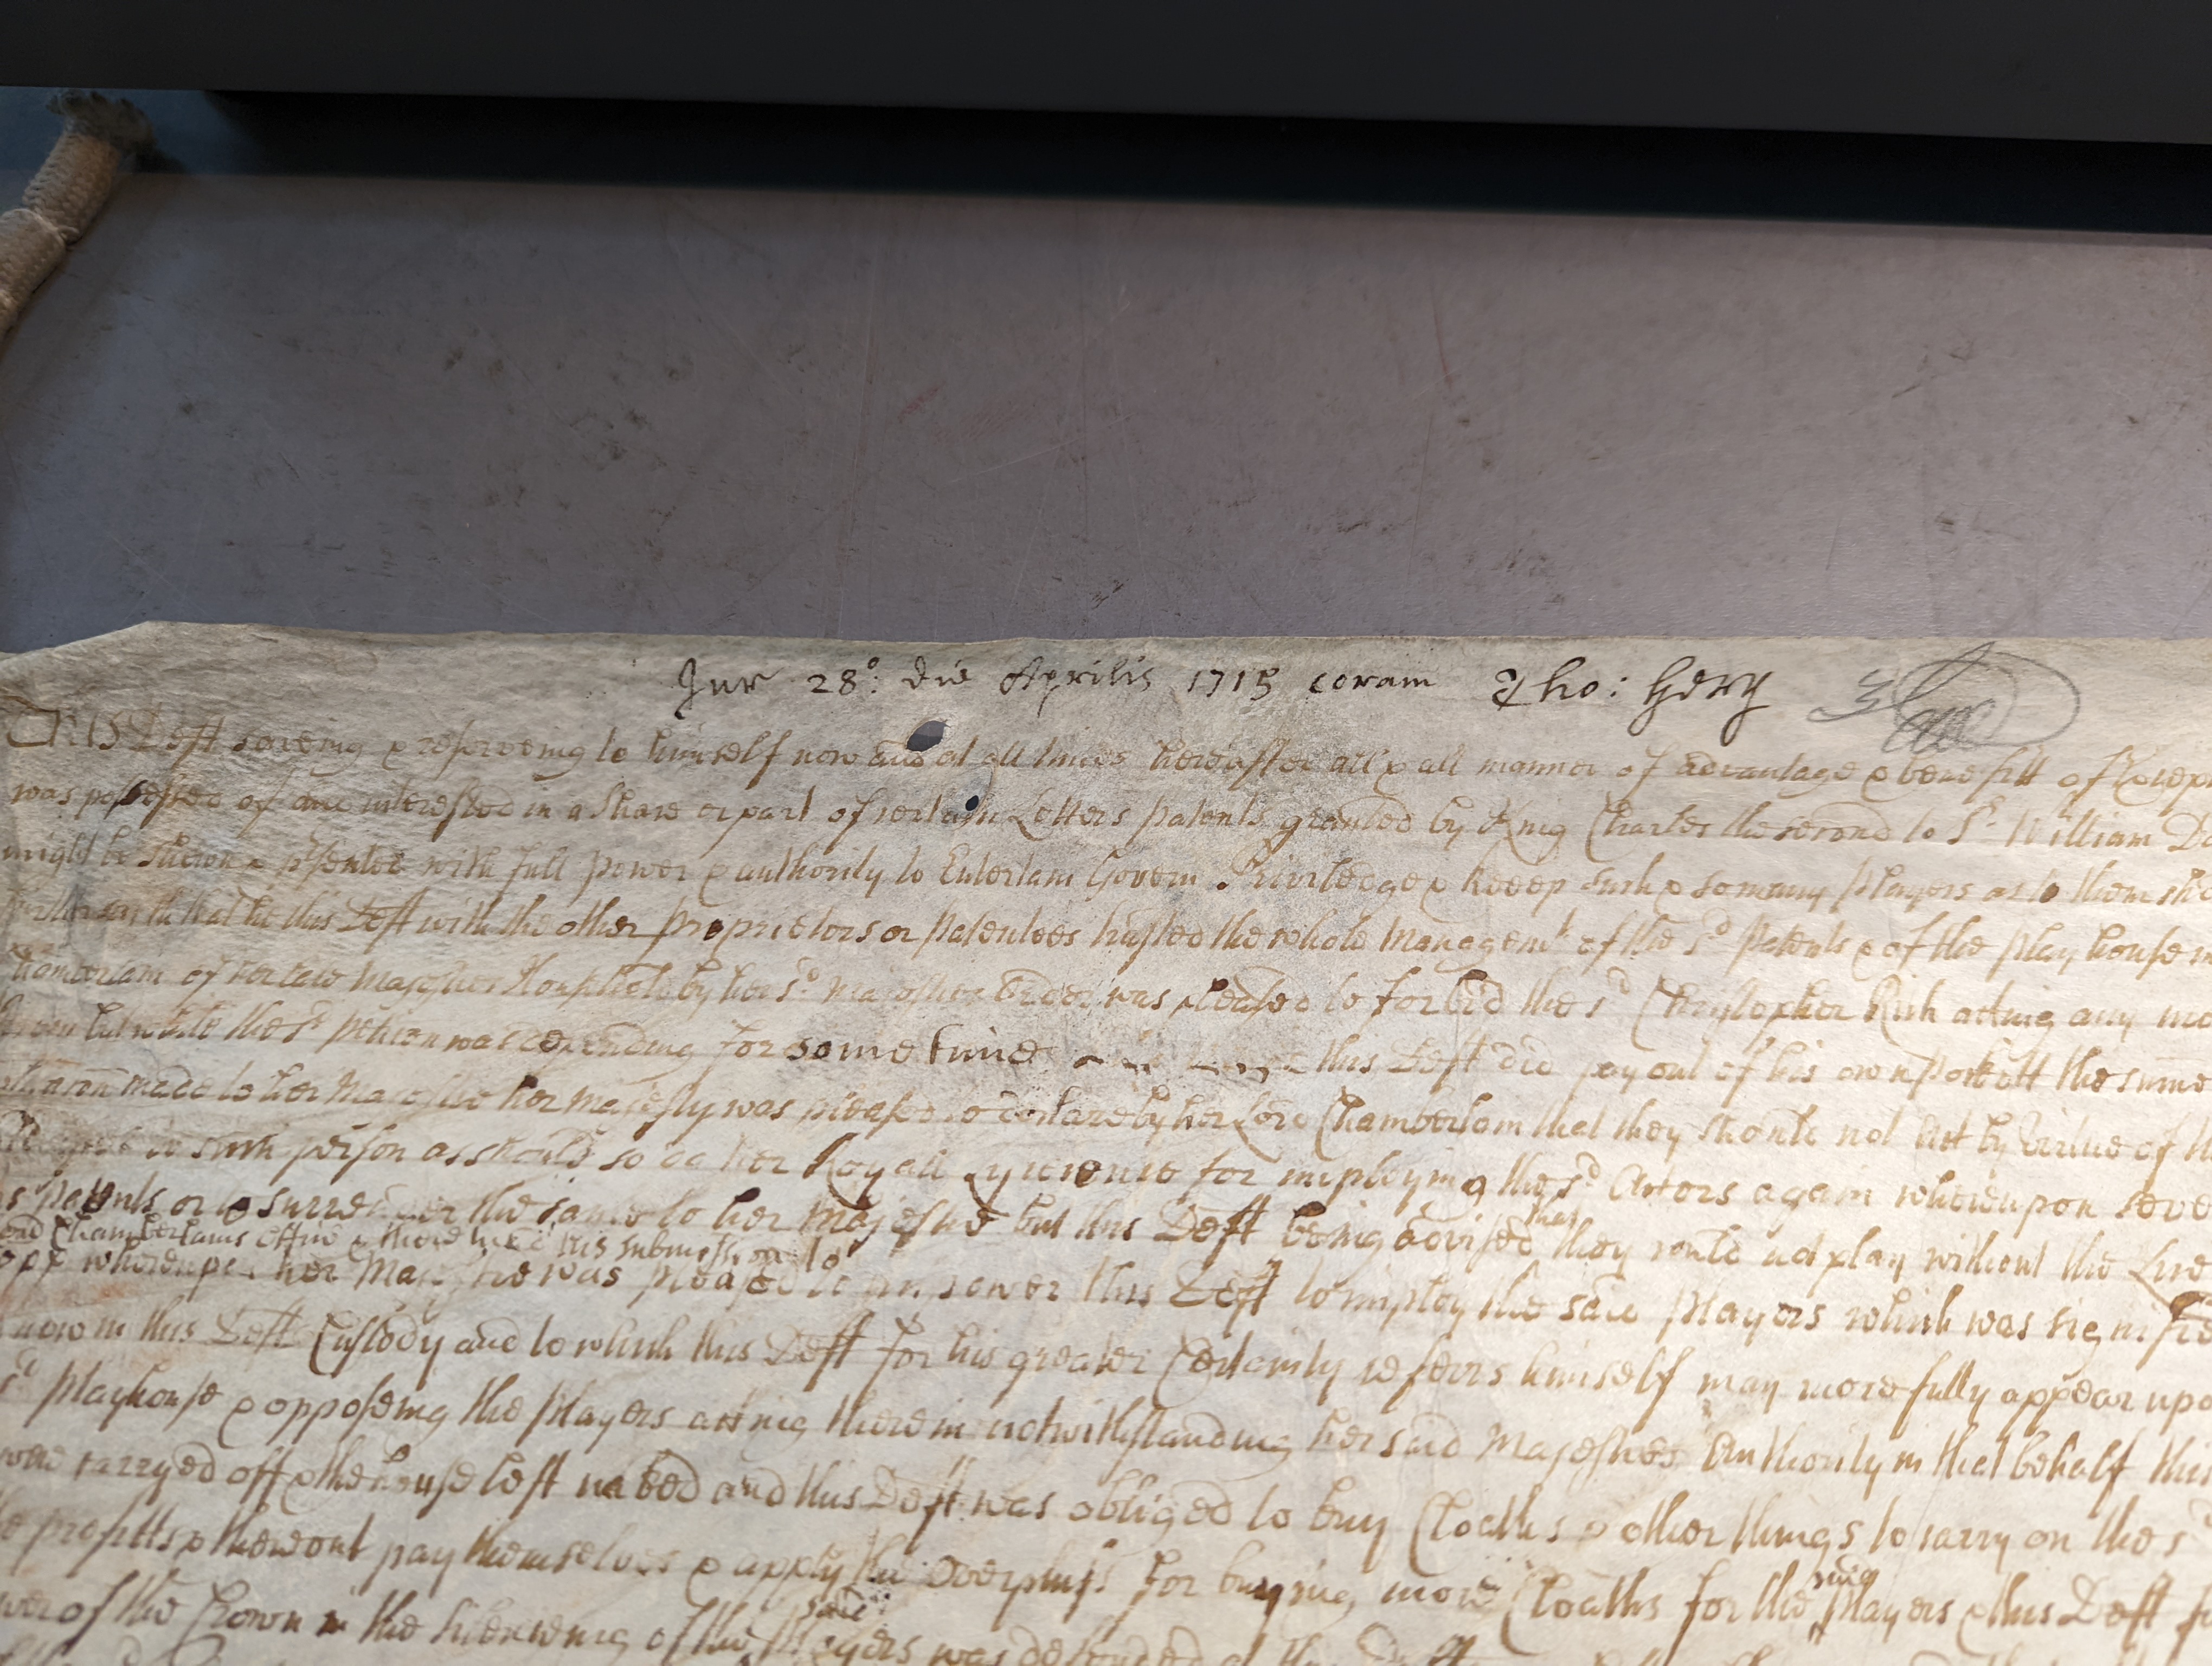 Jur 28°: die Aprilis 1715 coram Tho: Gery
This Deft saveing & reserveing to himself now and at all times hereafter all & all manner of advantage & benefitt of Excep
was possessed of and interessed in a share or part of certain Letters patents granted by King Charles the second to Sr William Da
might be shewn & psented with full power & authority to Entertain Govern Priviledge & keep such & so many players as to them sho
that he this Deft with the other proprietors or patentees trusted the whole Managemt of the sd patents & of the play house in
Chamberlain of her late Majesties Houshold by her sd Majesties order was pleased to forbid the sd Christopher Rich acting any mo
but while the sd peticion was depending for some time this Deft did pay out of his own pockett the summe
made to her Majestie her Majesty was pleased to declare by her Lord Chamberlain that they should not Act by virtue of th
to such person as should so do her Royall Lycence for imploying the sd Actors again whereupon seve
patents or to surrender the same to her Majestie but this Deft being advised that they could not play without the Lice
Chamberlains office & there made his submission to
whereupon her Majestie was pleased to impower this Deft to imploy the said players which was signified
now in this Defts Custody and to which this Deft for his greater Certainty referrs himself may more fully appear upo
sd playhouse & opposeing the players acting therein notwithstanding her said Majesties Authority in that behalf the
were carryed off & the house left naked and this Deft was obliged to buy Cloaths & other things to carry on the s
profitts & thereout pay themselves & apply the overpluss for buying more Cloaths for the said players & this Deft f
of the Crown in the licenceing of the said players was defended at